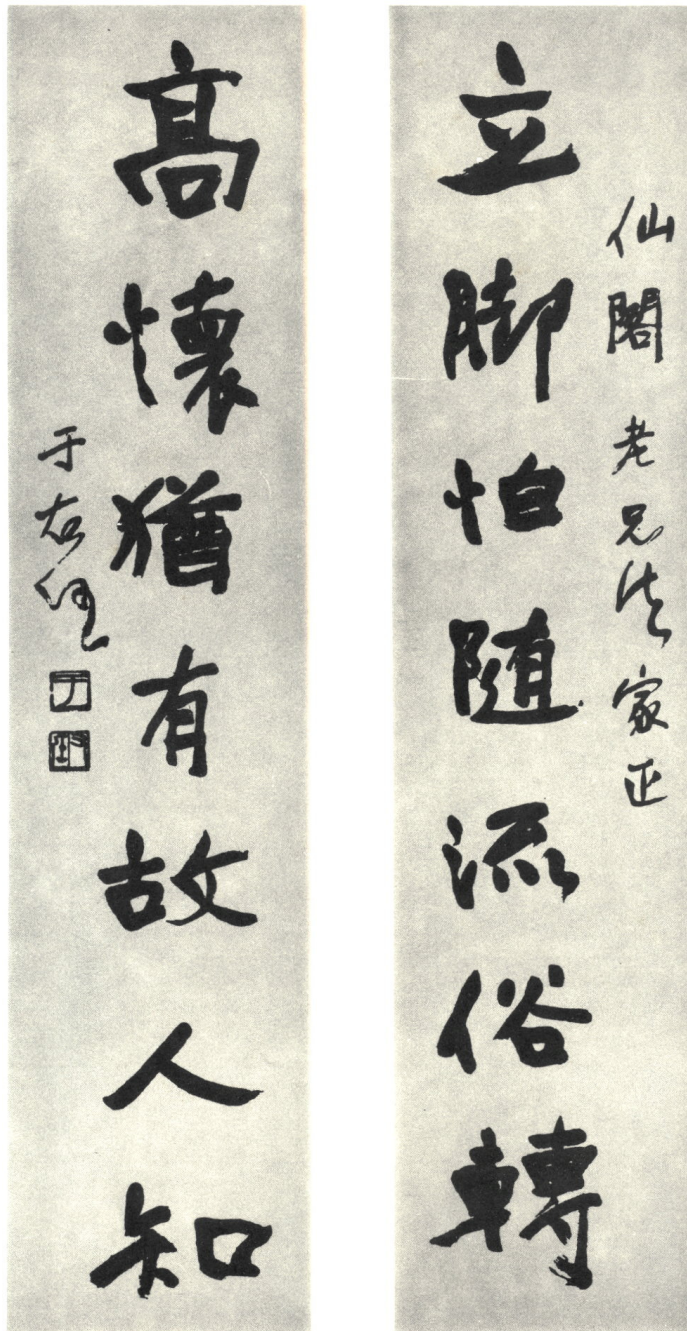 仙閣老兄法家正
立脚怕隨流俗轉
高懷猶有故人知
于右任